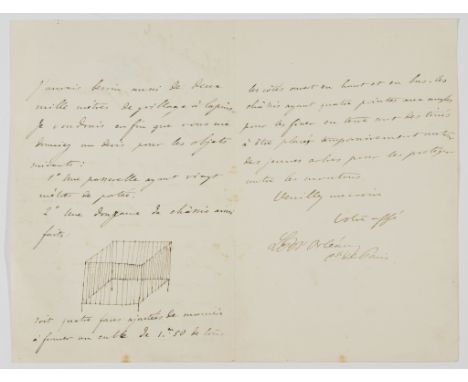 J'aurais besoin aussi de deux
mille mètres de grillage à lapins.
Je voudrais enfin que vous me
donniez un devis pour les objets
suivants :
1° Une passerelle ayant vingt
mètres de portée.
2° Une douzaine de châssis ainsi
faits :
soit quatre faces ajustées de manière
à former un cube de 1.m50 de tous
les côtés ouvert en haut et en bas. les
châssis ayant quatre pointes aux angles
pour les fixer en terre sont destinés
à être placés
des jeunes arbres pour les protéger
contre les moutons.
Veuillez me croire
Votre affé
d'Orléans
Cte de Paris